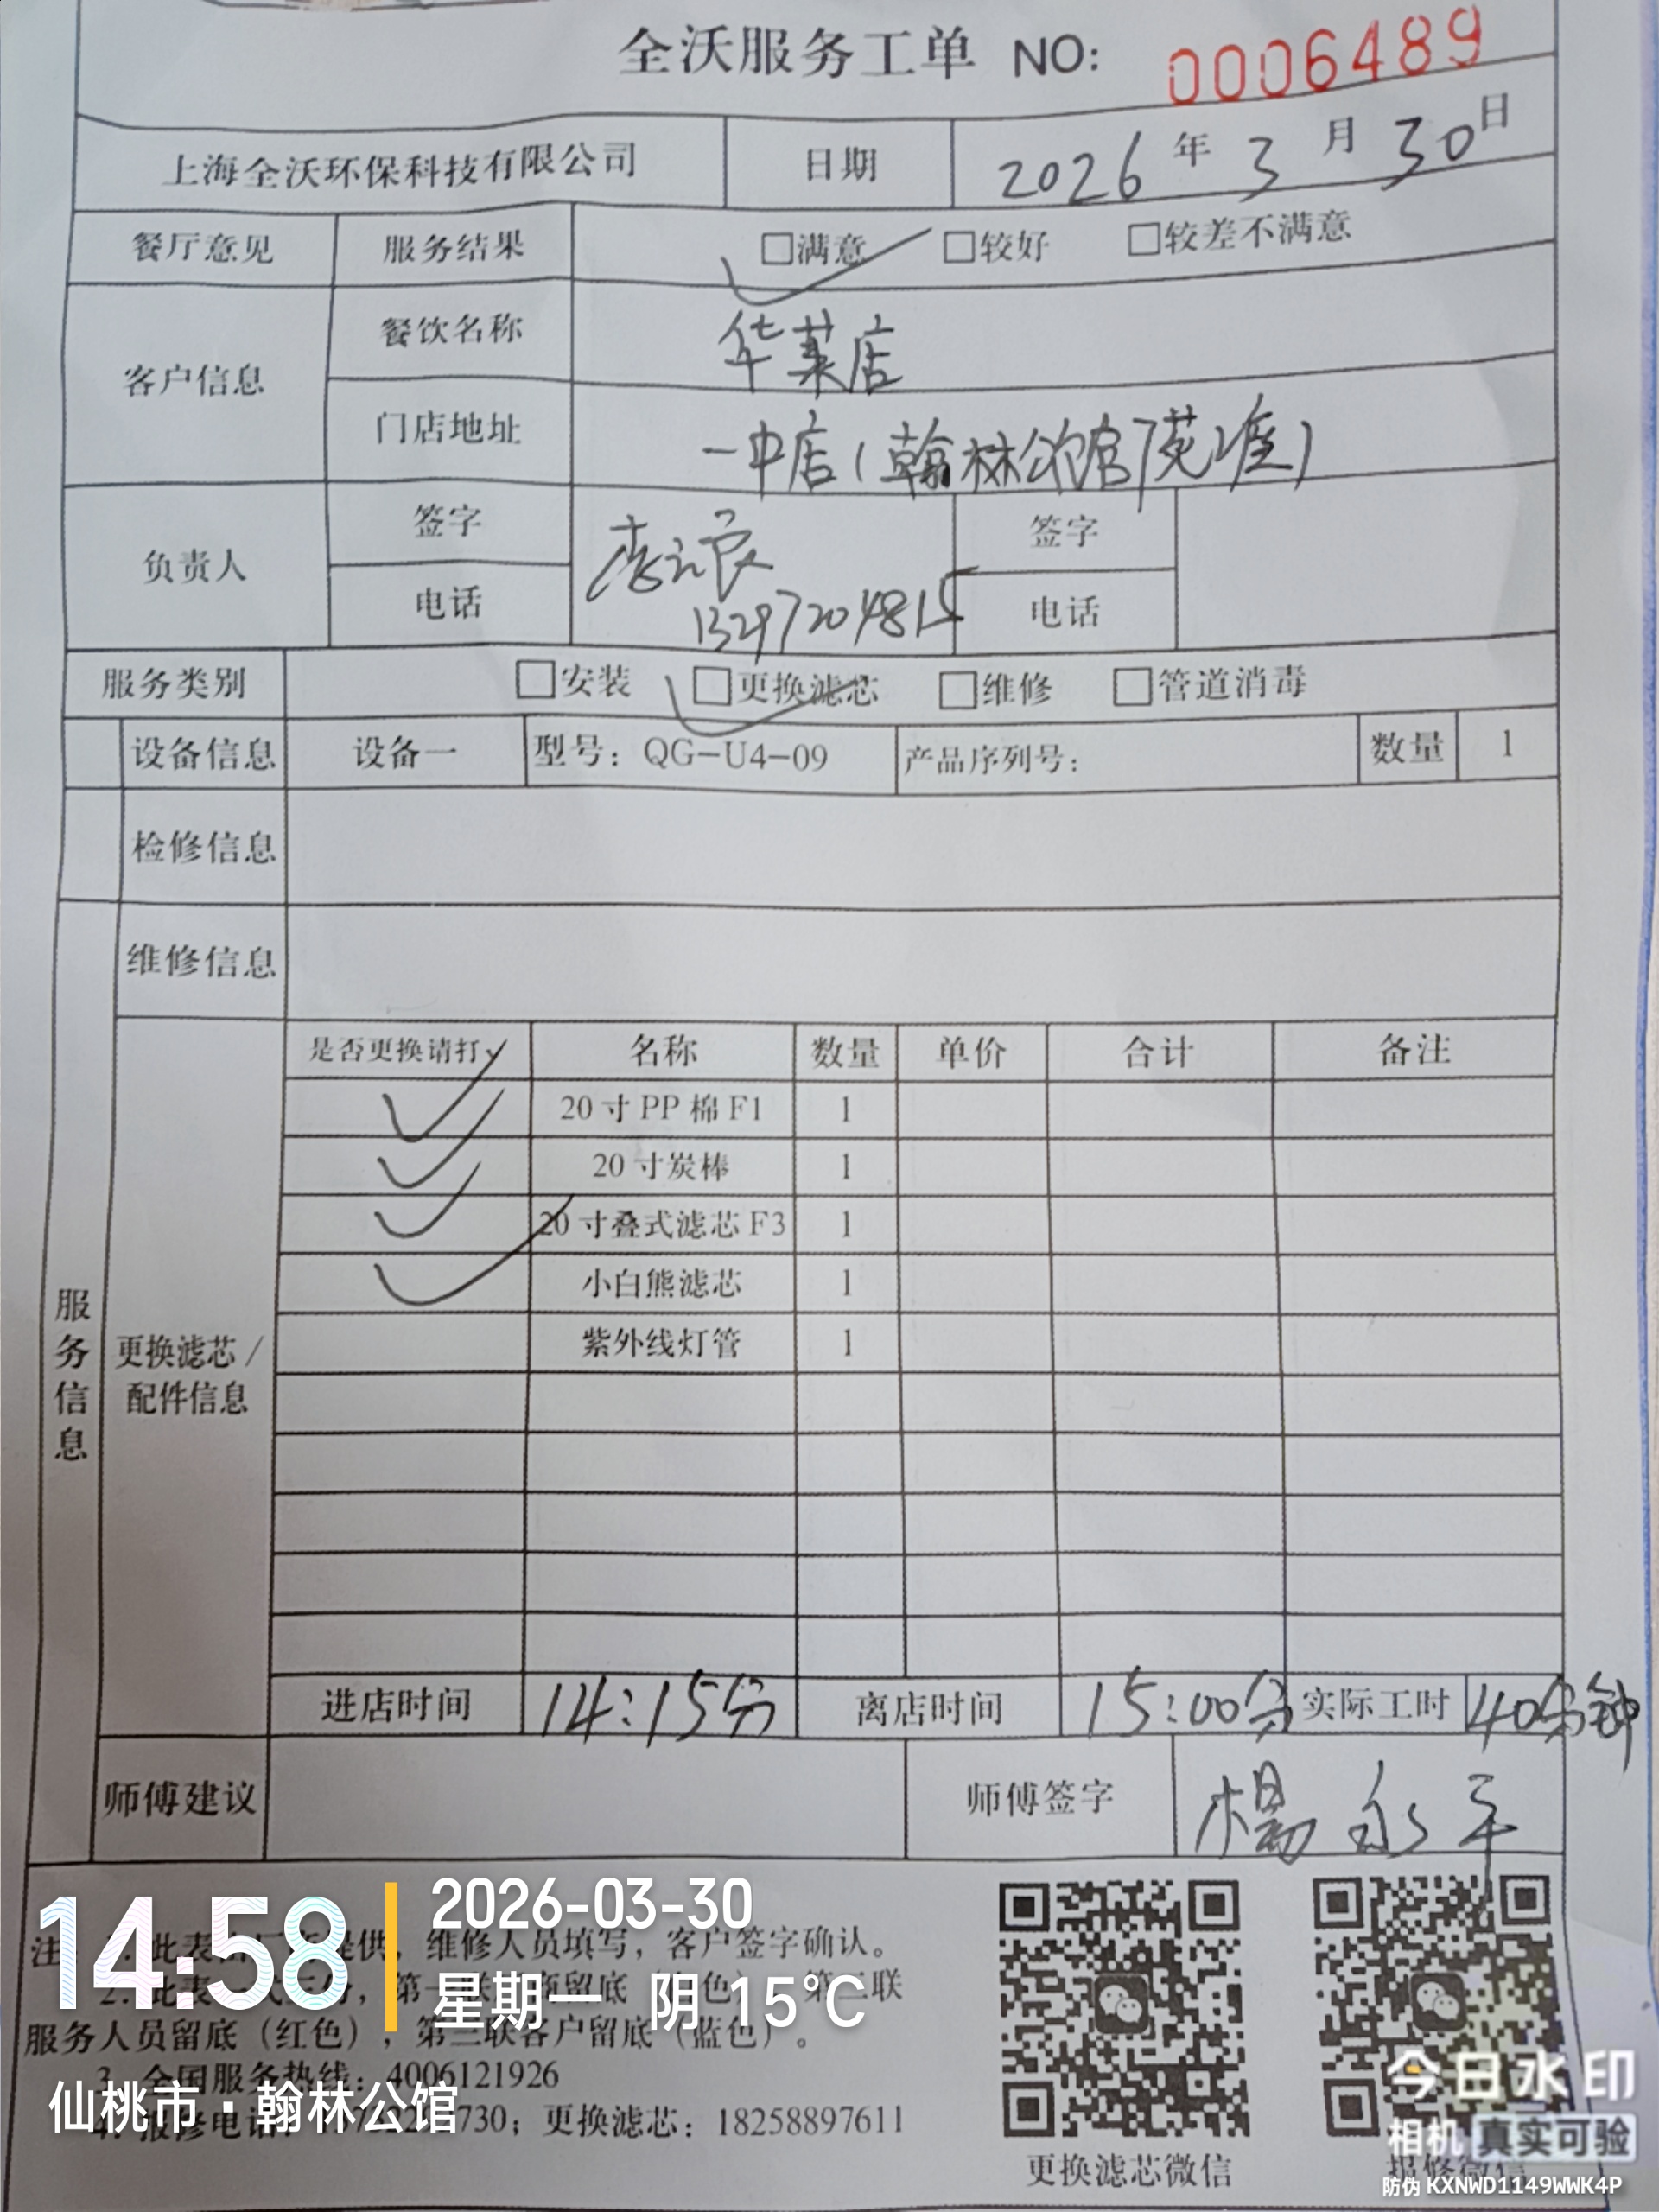 全沃服务工单 NO: 0006489
上海全沃环保科技有限公司 日期 2026年3月30日
餐厅意见 服务结果 □满意 □较好 □较差不满意
客户信息 餐饮名称 华莱店
门店地址 一中店(翰林公馆
负责人 签字 签字
电话 13297204815 电话
服务类别 □安装 □更换滤芯 □维修 □管道消毒
设备信息 设备一 型号：QG-U4-09 产品序列号： 数量 1
检修信息
维修信息
服务信息
更换滤芯/
配件信息
是否更换请打✓ 名称 数量 单价 合计 备注
✓ 20寸PP棉F1 1
✓ 20寸炭棒 1
✓ 20寸叠式滤芯F3 1
✓ 小白熊滤芯 1
紫外线灯管 1
进店时间 14:15分 离店时间 15:00分 实际工时 40分钟
师傅建议 师傅签字 楊永平
14:58
2026-03-30
星期一 阴 15℃
仙桃市·翰林公馆
注 此表 提供，维修人员填写，客户签字确认。
2. 此表 第一联 商留底 色） 第二联
服务人员留底（红色），第三联客户留底（蓝色）。
3. 全国服务热线：4006121926
4. 报修电话： 730；更换滤芯：18258897611
更换滤芯微信
报修微信
今日水印
相机 真实可验
防伪 KXNWD1149WWK4P